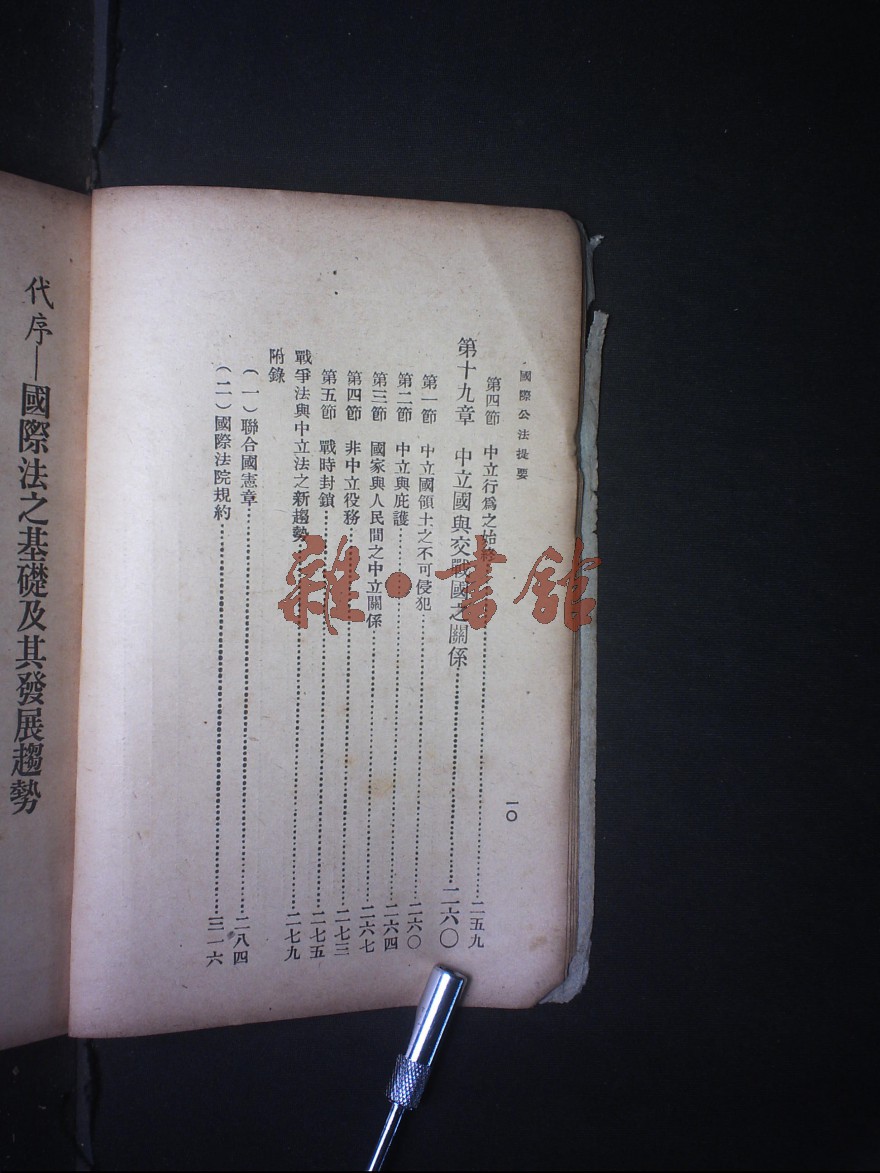 國際公法提要
一〇
第四節 中立行爲之始終……二五九
第十九章 中立國與交戰國之關係……二六〇
第一節 中立國領土之不可侵犯……二六〇
第二節 中立與庇護……二六四
第三節 國家與人民間之中立關係……二六七
第四節 非中立役務……二七三
第五節 戰時封鎖……二七五
戰爭法與中立法之新趨勢……二七九
附錄
(一)聯合國憲章……二八四
(二)國際法院規約……三一六
代序—國際法之基礎及其發展趨勢
雜·書館